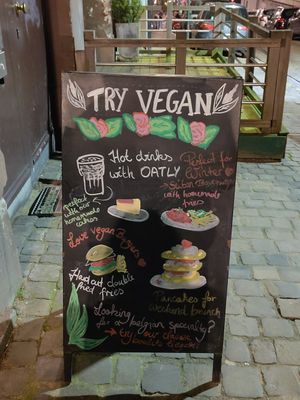 TRY VEGAN
Hot drinks
with OATLY
Perfect for
Winter
with homemade
fries
perfect
with our
homemade
cakes
Love Vegan Burgers
Hand cut double
fried fries
Pancakes for
weekend brunch
Looking
for a belgian speciality?
try our